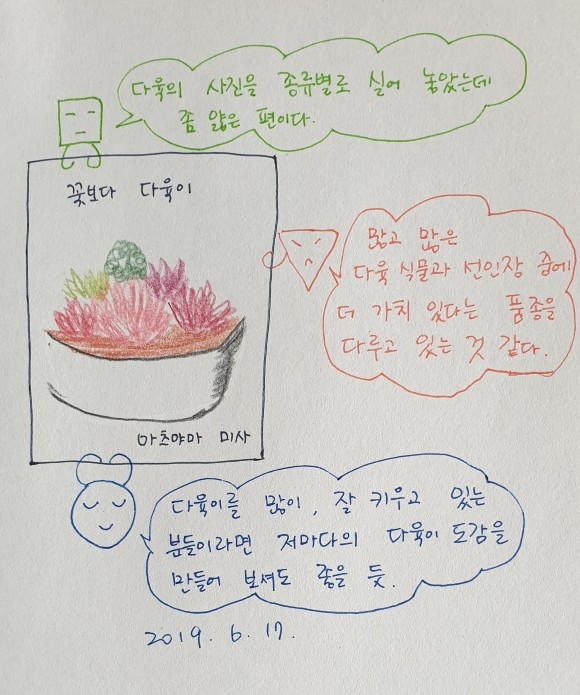 다육의 사진을 종류별로 실어 놓았는데
좀 얇은 편이다.
꽃보다 다육이
많고 많은
다육 식물과 선인장 중에
더 가치 있다는 품종을
다루고 있는 것 같다.
마츠야마 미사
다육이를 많이, 잘 키우고 있는
분들이라면 저마다의 다육이 도감을
만들어 보셔도 좋을 듯.
2019. 6. 17.